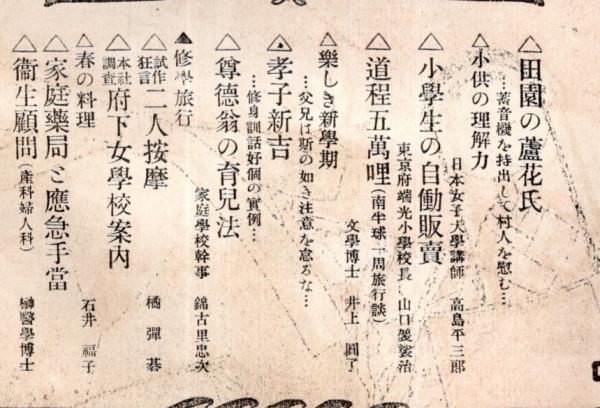 △田園の蘆花氏
…蓄音機を持出して村人を慰む…
△小供の理解力
日本女子大學講師 高島平三郎
△小學生の自働販賣
東京府端光小學校長 山口袈裟治
△道程五萬哩(南半球一周旅行談)
文學博士 井上圓了
△樂しき新學期
…父兄は斯の如き注意を怠るな…
△孝子新吉
…修身訓話好個の實例…
△尊德翁の育兒法
家庭學校幹事 錦古里忠次
▲修學旅行
△試作狂言 二人按摩 橘彈碁
△本社調査 府下女學校案内
△春の料理 石井福子
△家庭藥局と應急手當
△衞生顧問(産科婦人科) 榊醫學博士